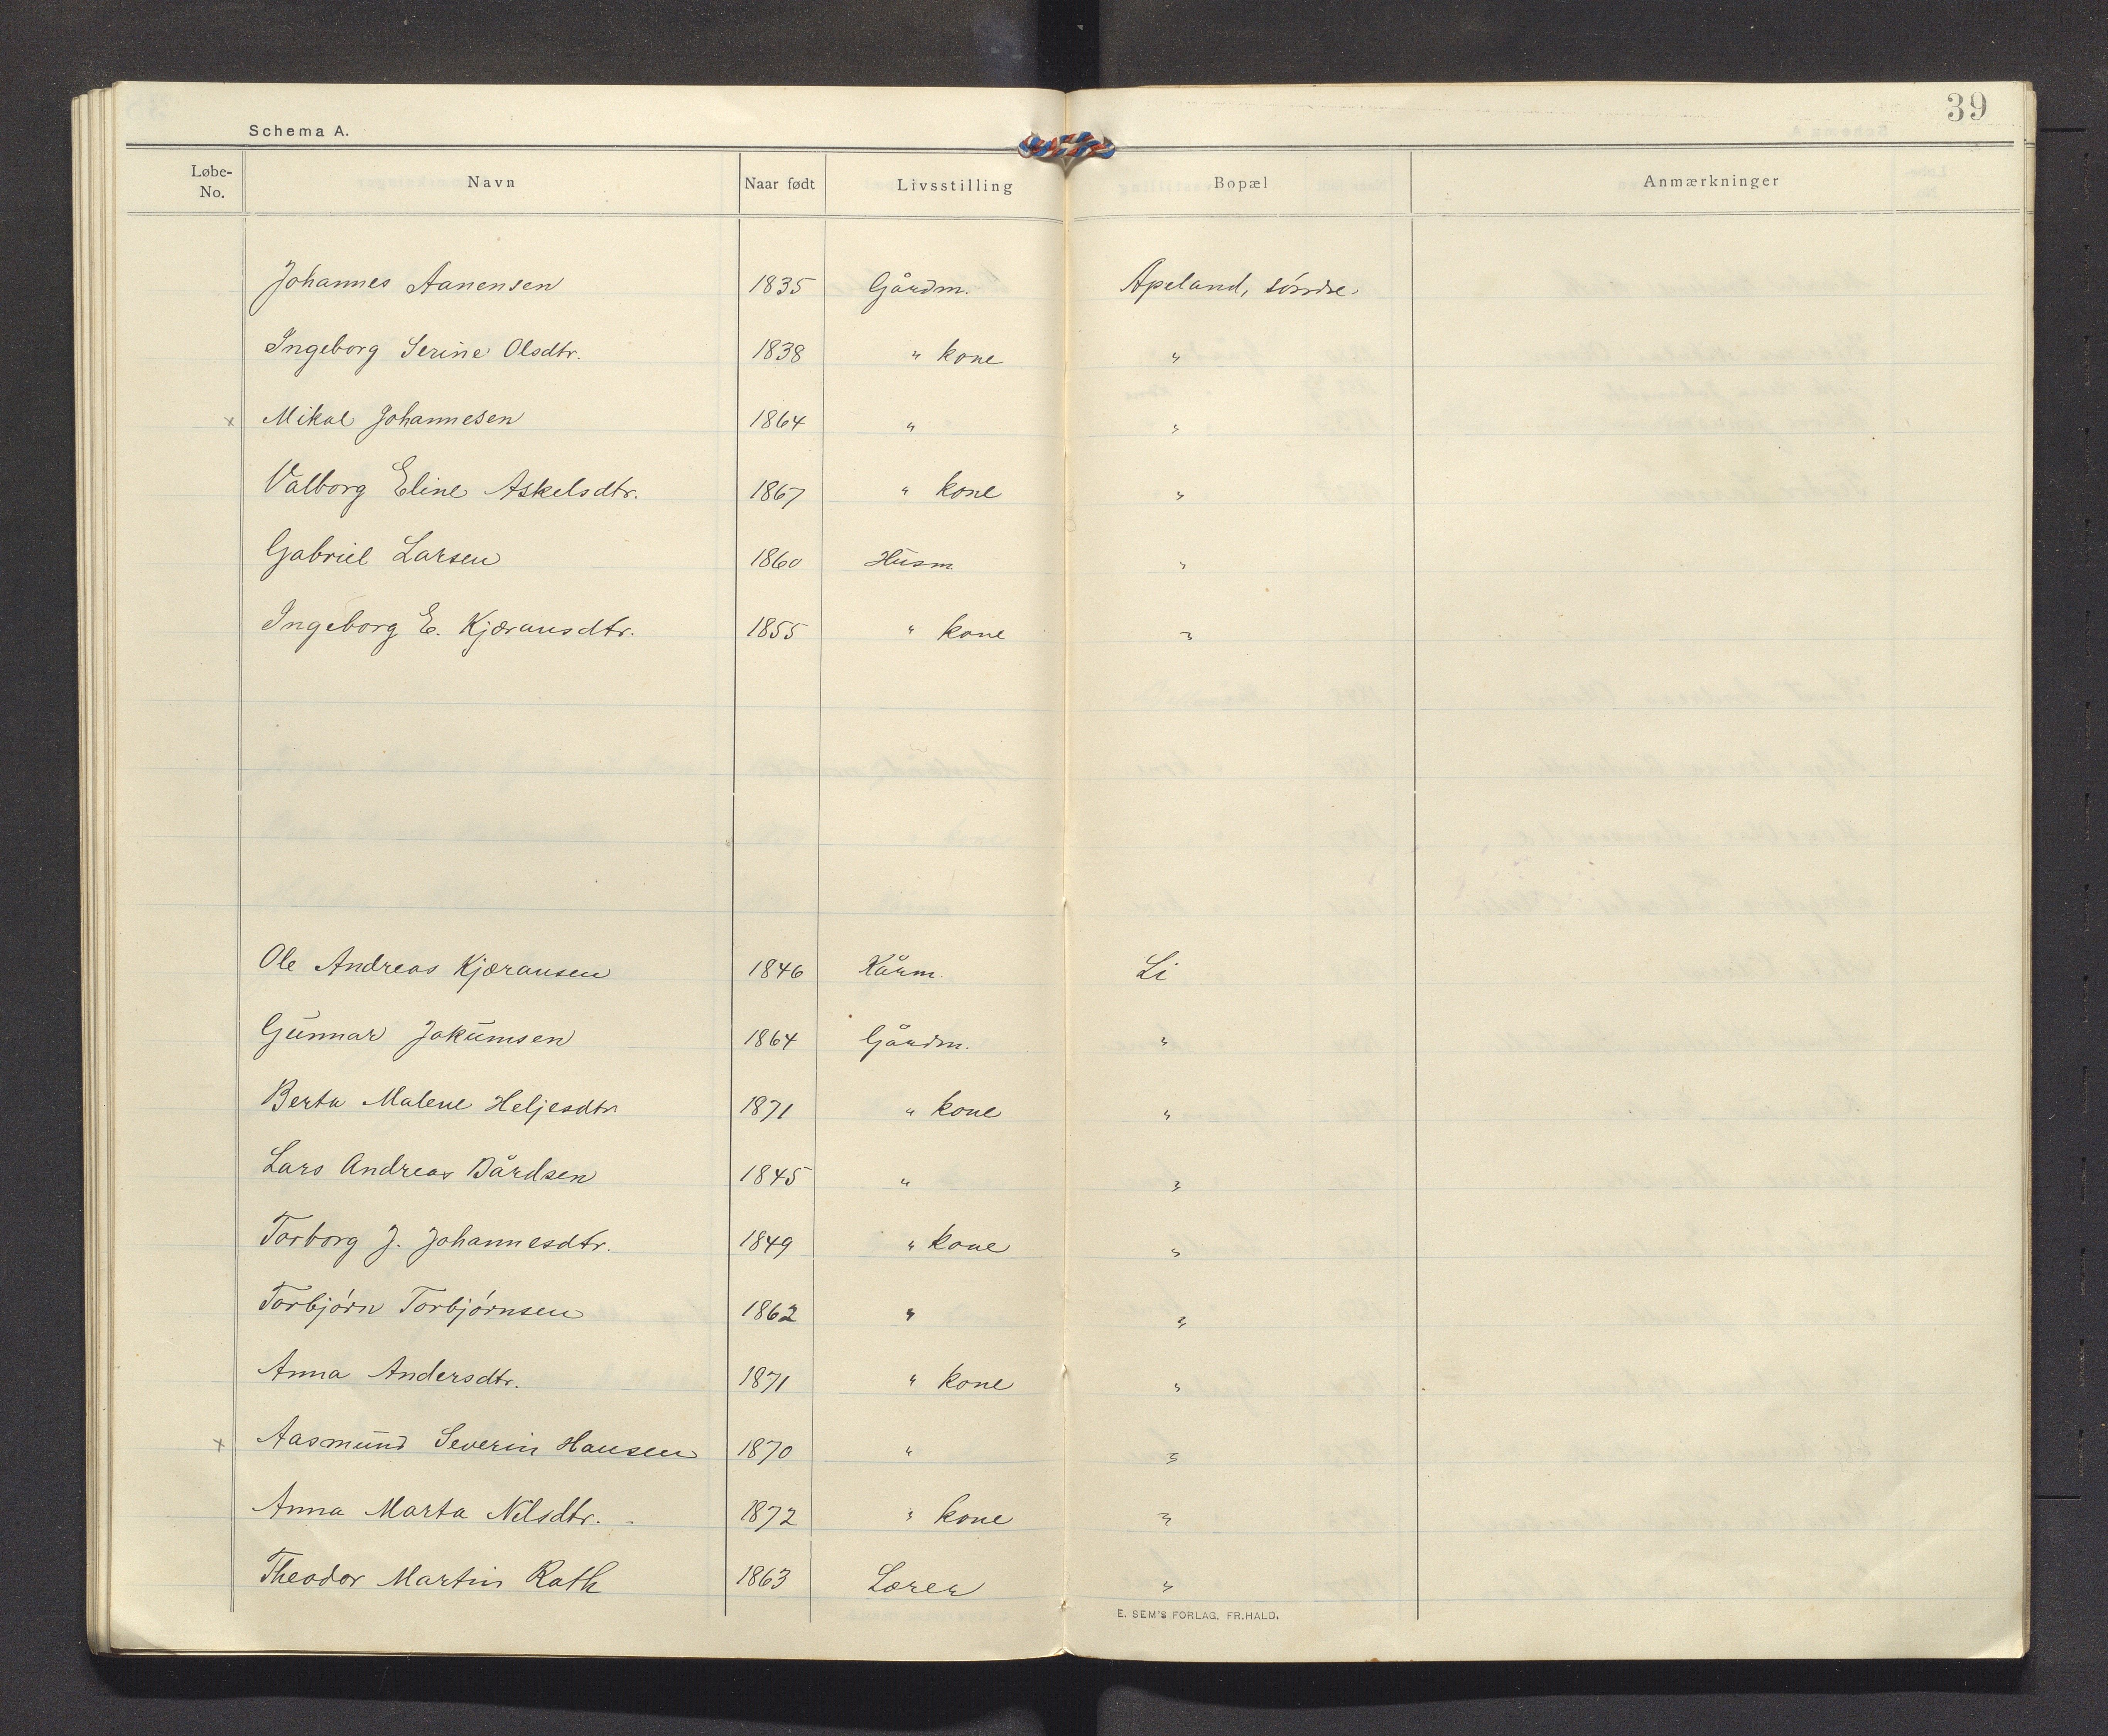 39
Schema A.
Løbe-No. Navn Naar født Livsstilling Bopæl Anmærkninger
Johannes Aanensen 1835 Gårdm. Apeland, söndre.
Ingeborg Serine Olsdtr. 1838 " kone "
x Mikal Johannesen 1864 " "
Valborg Eline Askelsdtr. 1867 " kone "
Gabriel Larsen 1860 Husm. "
Ingeborg E. Kjæransdtr. 1855 " kone "
Ole Andreas Kjæransen 1846 Kårm. Li
Gunnar Jakumsen 1864 Gårdm. "
Berta Malene Heljesdtr. 1871 " kone "
Lars Andreas Bårdsen 1845 " "
Torborg J. Johannesdtr. 1849 " kone "
Torbjörn Torbjörnsen 1862 " "
Anna Andersdtr. 1871 " kone "
x Aasmund Severin Hansen 1870 " "
Anna Marta Nilsdtr. 1872 " kone "
Theodor Martin Rath 1863 Lærer "
E. SEM'S FORLAG, FR.HALD.